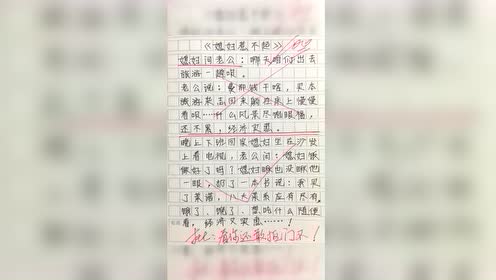 《媳妇惹不起》
媳妇问老公：哪天咱们出去
旅游一趟呗。
老公说：费那钱干啥，买本
微海杂志回来躺在床上慢慢
看呗……什么风景尽收眼福，
还不累，经济实惠。
晚上下班回家媳妇坐在沙发
上看电视，老公问：媳妇饭
做好了吗？媳妇瞅也没瞅他
一眼，扔了一本书说：我买
了菜谱，八大菜系应有尽有。
饿了、饿了、想吃什么随便
看，经济又实惠……！
批：看你还敢抠门不！